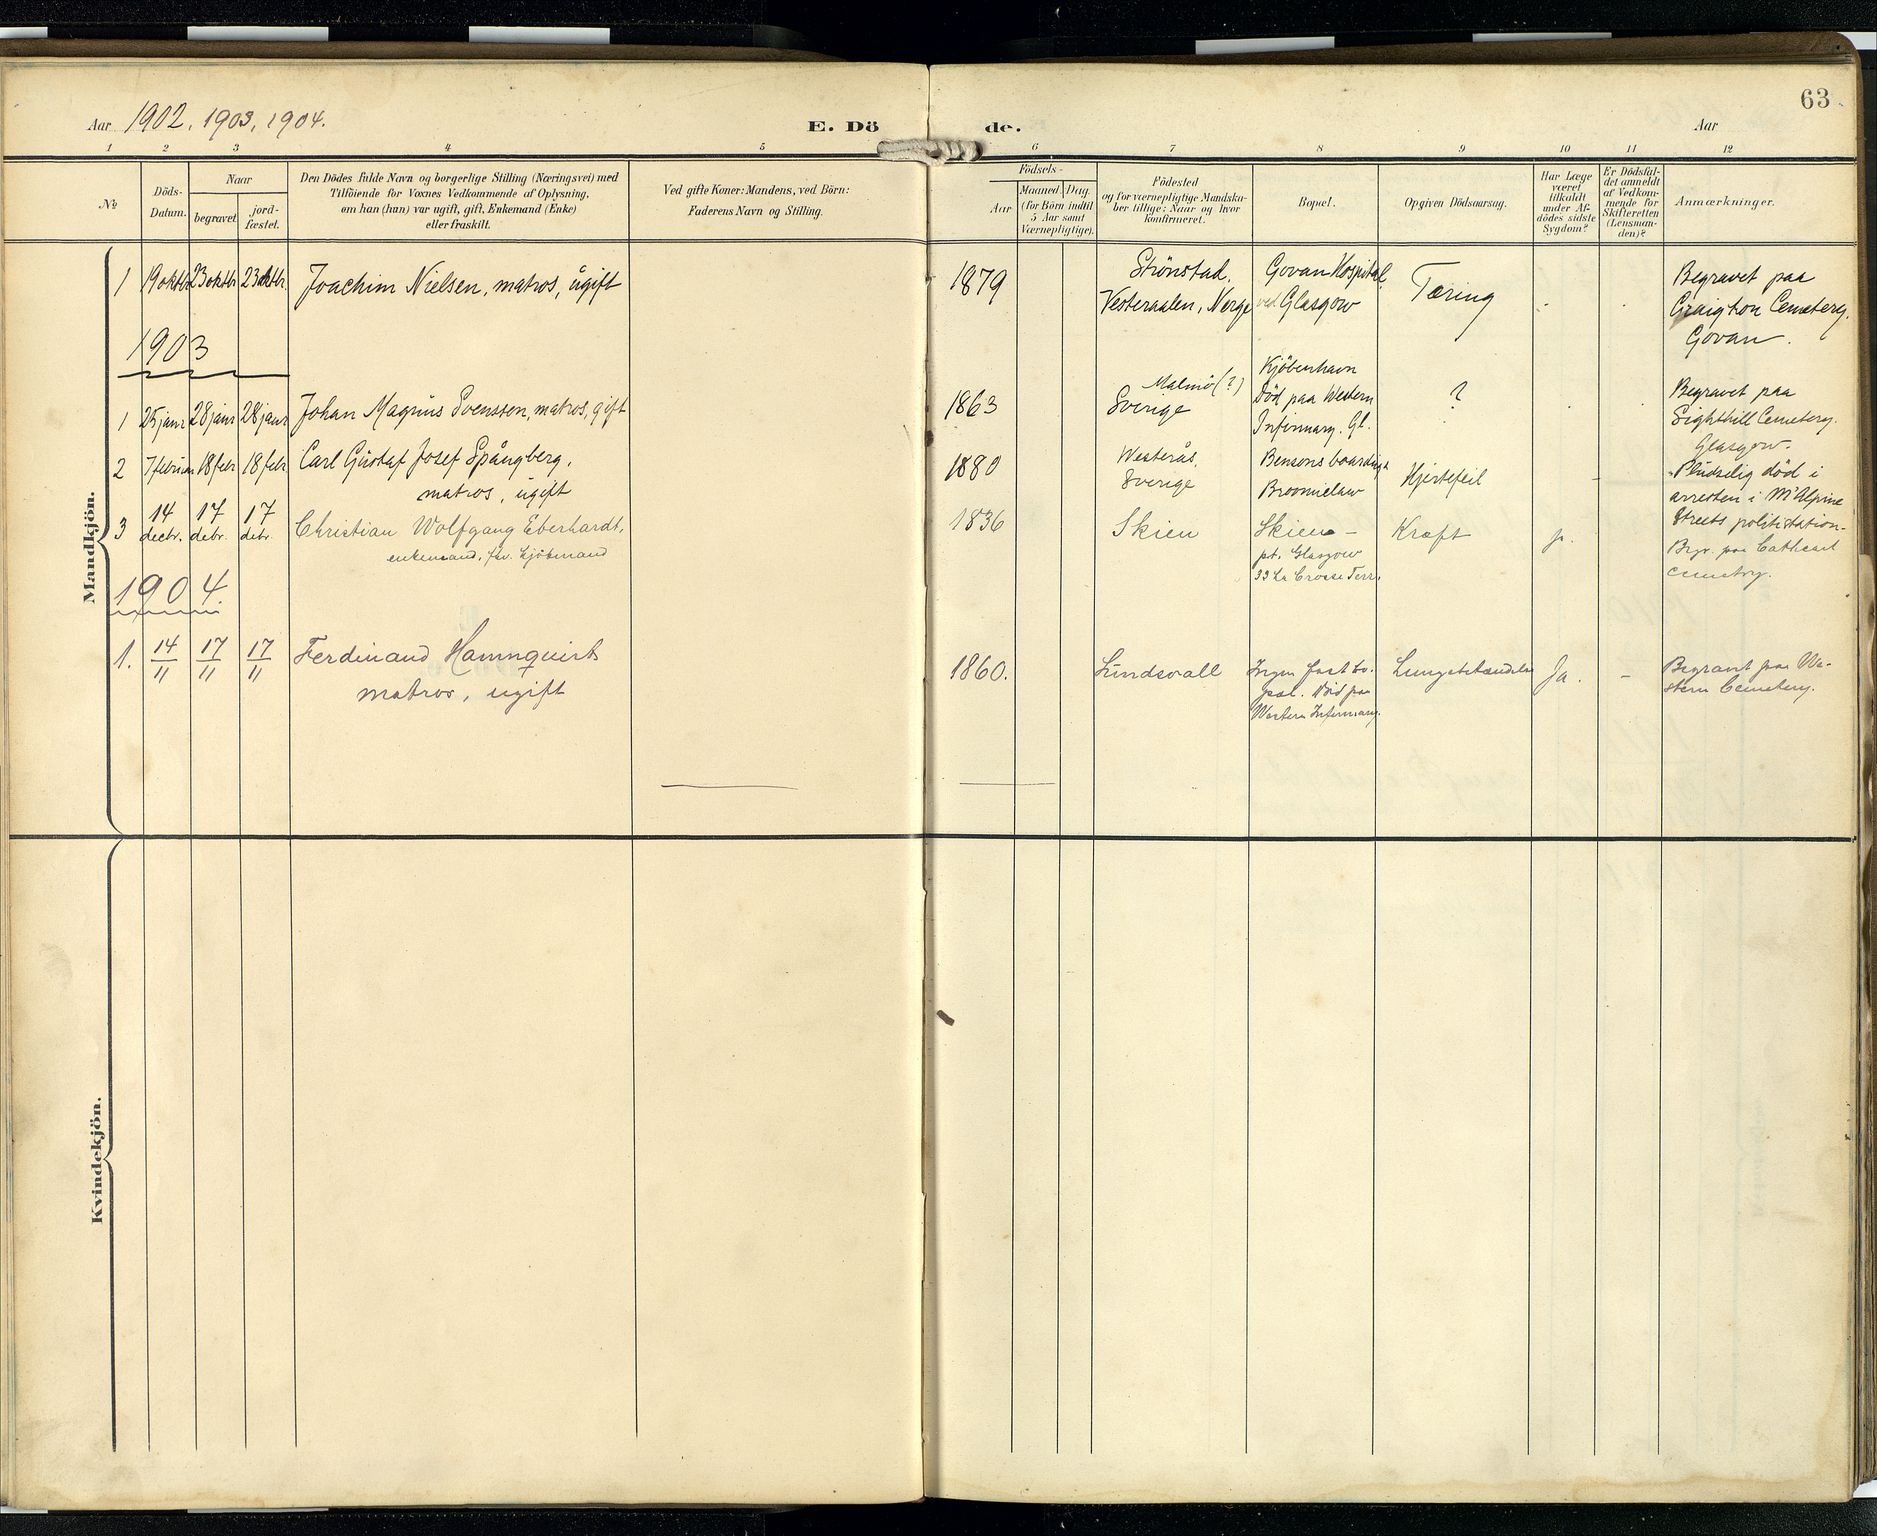 63
Aar 1902, 1903, 1904.
E. Dö de.
Aar
1 2 3 4 5 6 7 8 9 10 11 12
No
Döds-
Datum.
Naar
begravet.
jord-
fæstet.
Den Dödes fulde Navn og borgerlige Stilling (Næringsvei) med
Tilföiende for Voxnes Vedkommende af Oplysning,
om han (hun) var ugift, gift, Enkemand (Enke)
eller fraskilt.
Ved gifte Koner: Mandens, ved Börn:
Faderens Navn og Stilling.
Födsels-
Aar
Maaned. Dag.
(for Börn indtil
5 Aar samt
Værnepligtige).
Födested
og for værnepligtige Mandska-
ber tillige: Naar og hvor
konfirmeret.
Bopæl.
Opgiven Dödsaarsag.
Har Læge
været
tilkaldt
under Af-
dödes sidste
Sygdom?
Er Dödsfal-
det anmeldt
af Vedkom-
mende for
Skifteretten
(Lensman-
den)?
Anmærkninger.
Mandkjön.
1 19 oktbr 23 oktbr 23 oktbr. Joachim Nielsen, matros, ugift
1879
Strönstad.
Vesteraalen, Norge
Govan Hospital
ved Glasgow
Tæring
Begravet paa
Craigton Cemetery.
Govan.
1903
1 25 janr 28 janr 28 janr Johan Magnus Svensson, matros, gift
1863
Malmö (?)
Sverige
Kjöbenhavn
Död paa Western
Infirmary. Gl.
?
Begravet paa
Sighthill Cemetery.
Glasgow.
2 7 februar 18 febr 18 febr Carl Gustaf Josef Spångberg,
matros, ugift
1880
Westerås,
Sverige
Bensons boarding
Broomielaw
Hjertefeil
-
Pludselig död i
arresten i McAlpine
Streets politistation-
3 14 decbr. 17 debr. 17 debr. Christian Wolfgang Eberhardt,
enkemand, fhv. kjöbmand
1836
Skien
Skien -
pt. Glasgow
33 La Crosse Terr.
Kræft
j.
Begr. paa Cathcart
cemetry.
1904.
1. 14/11 17/11 17/11 Ferdinand Hamnquist
matros, ugift
1860.
Sundsvall
Ingen fast bo-
pæl. Död paa
Western Infirmary.
Lungebetændelse
Ja.
-
Begravet paa We-
stern Cemetery.
Kvindekjön.